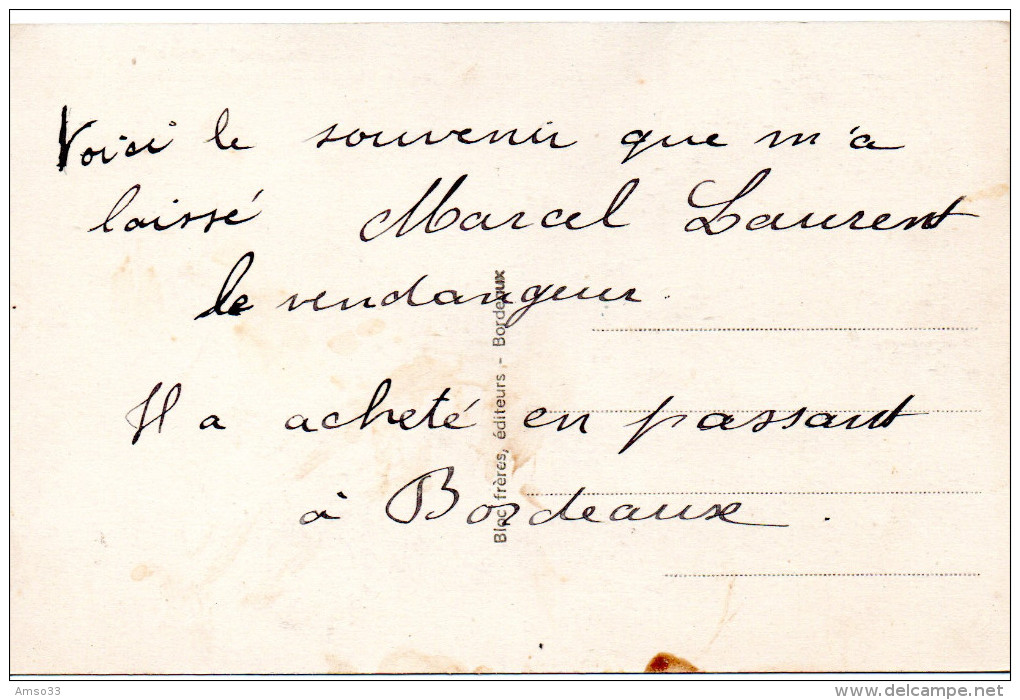 Voici le souvenir que m'a
laissé Marcel Laurent
le vendangeur.
Il a acheté en passant
à Bordeaux.
Bloc frères, éditeurs, - Bordeaux
Amso33
www.delcampe.net